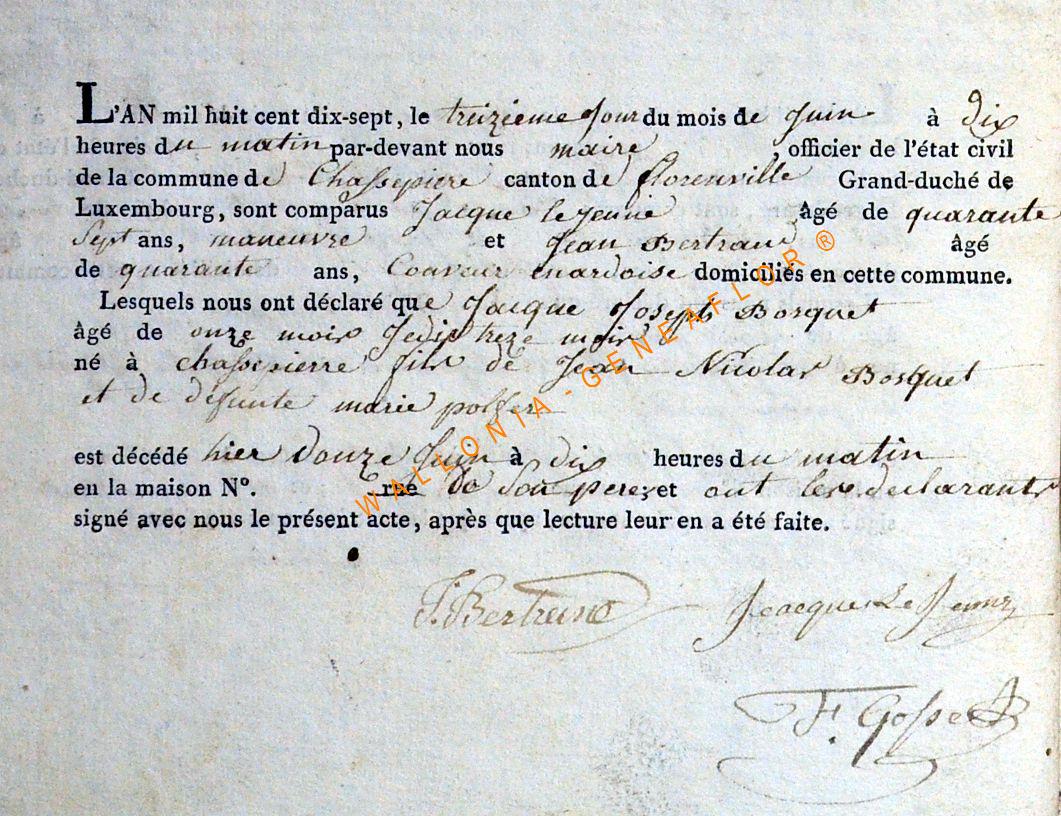 L'AN mil huit cent dix-sept, le treizieme Jour du mois de Juin à dix
heures du matin par-devant nous maire officier de l'état civil
de la commune de Chassepierre canton de florenville Grand-duché de
Luxembourg, sont comparus Jacque le jeune âgé de quarante
Sept ans, maneuvre et Jean Bertrand âgé
de quarante ans, Couvreur enardoise domiciliés en cette commune.
Lesquels nous ont déclaré que Jacque Joseph Bosquet
âgé de onze mois Je dis treze mois
né à chassepierre fils de Jean Nicolas Bosquet
et de defunte marie
est décédé hier Douze Juin à dix heures du matin
en la maison N°. rue de Son pere; et ont les declarants
signé avec nous le présent acte, après que lecture leur en a été faite.
J. Bertrand Jacque Le Jeune
F. Gosset
WALLONIA - GENEAFLOR ®